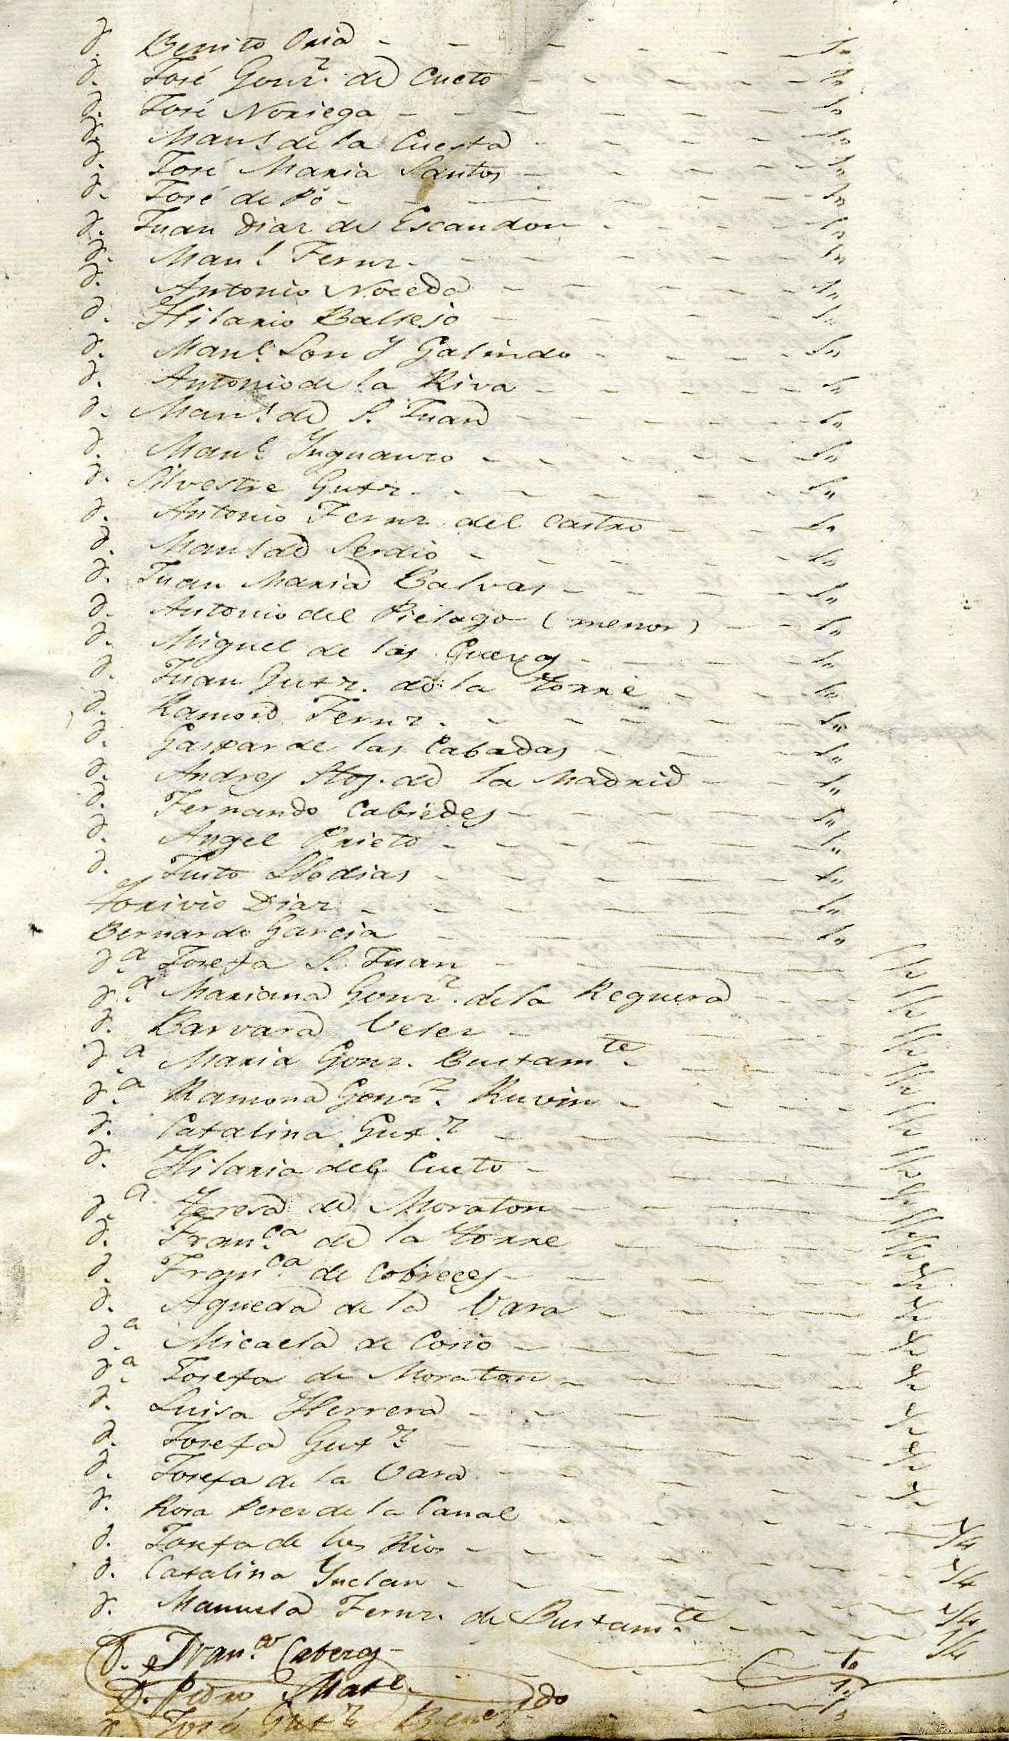 D. Benito Oria - - - - - 1,,
D. José Gonz.z de Cueto - - - - 1,,
D. José Noriega - - - - - 1,,
D. Manl de la Cuesta - - - - 1,,
D. José Maria Santos - - - - 1,,
D. José de Pó - - - - - 1,,
D. Juan Diaz de Escandon - - - 1,,
D. Man.l Fernz. - - - - - 1,,
D. Antonio Noceda - - - - 1,,
D. Hilario Ballejo - - - - 1,,
D. Man.l Son y Galindo - - - 1,,
D. Antonio de la Riva - - - - 1,,
D. Man.l de S. Juan - - - - 1,,
D. Man.l Ynguanzo - - - - 1,,
D. Silvestre Gutz. - - - - - 1,,
D. Antonio Fernz. del Castro - - - 1,,
D. Manl de Serdio - - - - 1,,
D. Juan Maria Balvas - - - - 1,,
D. Antonio del Pielago (menor) - - 1,,
D. Miguel de las Cuevas - - - 1,,
D. Juan Gutz. de la Torre - - - 1,,
D. Ramon Fernz. - - - - - 1,,
D. Gaspar de las Cabadas - - - 1,,
D. Andres Stos. de la Madrid - - 1,,
D. Fernando Cabiedes - - - - 1,,
D. Angel Prieto - - - - - 1,,
D. Justo Llodias - - - - - 1,,
Torivio Diaz - - - - - 1,,
Bernardo Garcia - - - - 1,,
D.a Josefa S. Juan - - - - 1/2
D.a Mariana Gonz.z de la Reguera - - 1/2
D. Barvara Veler - - - - 1/2
D.a Maria Gonz. Bustam.te - - - 1/2
D.a Ramona Gonz.z Ruvin - - - 1/2
D. Catalina Gut.z - - - - 1/2
D. Hilaria del Cueto - - - 1/2
D.a Teresa de Moraton - - - 1/2
D. Fran.ca de la Torre - - - 1/2
D. Fran.ca de Cobreces - - - 1/2
D. Agueda de la Vara - - - 1/2
D.a Micaela de Cosio - - - - 1/2
D.a Josefa de Moraton - - - 1/2
D. Luisa Herrera - - - - 1/2
D. Josefa Gut.z - - - - 1/2
D. Josefa de la Vara - - - - 1/2
D. Rosa Perez de la Canal - - - 1/4
D. Josefa de los Rios - - - - 1/4
D. Catalina Ynclan - - - - 1/4
D. Manuela Fernz. de Bustam.te - - 1/4
D. Fran.co Caberas - 1,,
D. Pedro Mate 1,,
D. José Gut.z 1,,